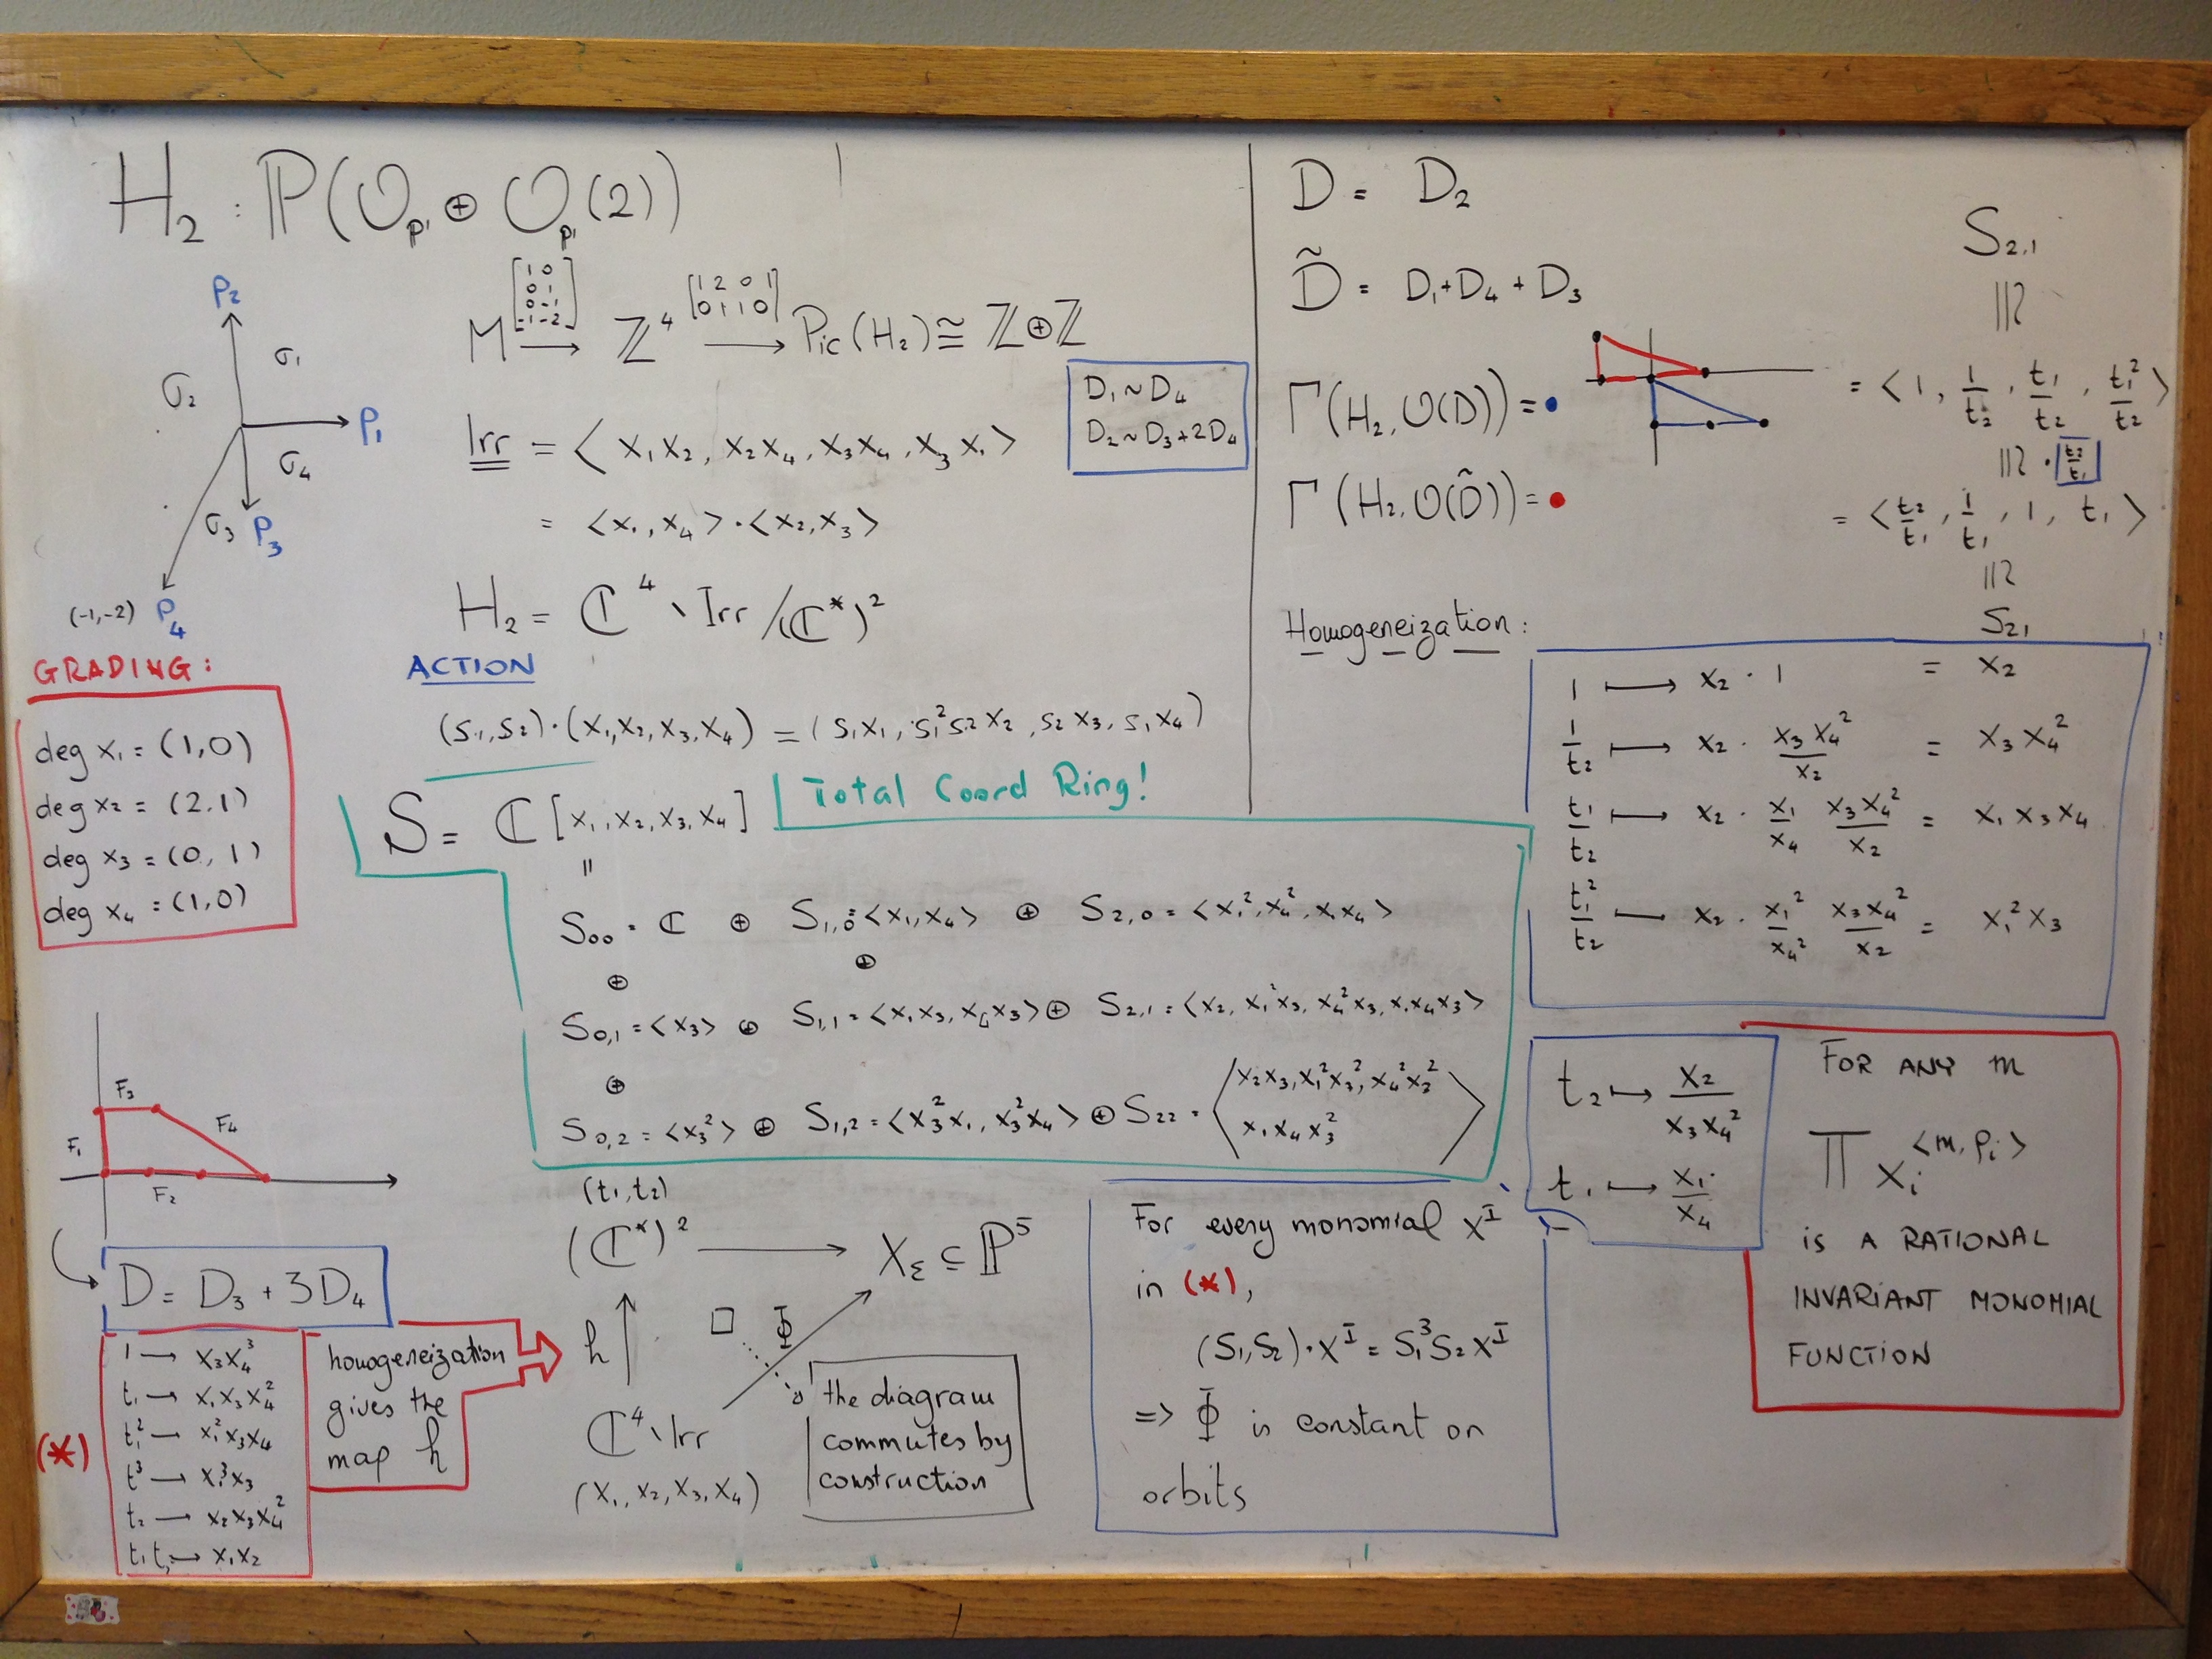 H₂ : ℙ(O_{P¹} ⊕ O_{P¹}(2))
P₂
σ₁
σ₂
P₁
σ₄
σ₃ P₃
(-1,-2) P₄
[1 0; 0 1; 0 -1; -1 -2] [1 2 0 1; 0 1 1 0]
M → ℤ⁴ → Pic(H₂) ≅ ℤ⊕ℤ
D₁ ~ D₄
D₂ ~ D₃+2D₄
Irr = < x₁x₂, x₂x₄, x₃x₄, x₃x₁ >
= <x₁, x₄> · <x₂, x₃>
H₂ = ℂ⁴ \ Irr /(ℂ*)²
GRADING:
deg x₁ = (1,0)
deg x₂ = (2,1)
deg x₃ = (0,1)
deg x₄ = (1,0)
ACTION
(s₁,s₂)·(x₁,x₂,x₃,x₄) = (s₁x₁, s₁²s₂x₂, s₂x₃, s₁x₄)
Total Coord Ring!
S = ℂ[x₁,x₂,x₃,x₄]
=
S₀₀ = ℂ ⊕ S₁,₀ = <x₁,x₄> ⊕ S₂,₀ = <x₁², x₄², x₁x₄>
⊕ ⊕
S₀,₁ = <x₃> ⊕ S₁,₁ = <x₁x₃, x₄x₃> ⊕ S₂,₁ = <x₂, x₁²x₃, x₄²x₃, x₁x₄x₃>
⊕
S₀,₂ = <x₃²> ⊕ S₁,₂ = <x₃²x₁, x₃²x₄> ⊕ S₂₂ = <x₂x₃, x₁²x₃², x₄²x₃²
x₁x₄x₃²>
F₃
F₁
F₄
F₂
D = D₃ + 3D₄
(*)
1 → x₃x₄³
t₁ → x₁x₃x₄²
t₁² → x₁²x₃x₄
t³ → x₁³x₃
t₂ → x₂x₃x₄²
t₁t₂ → x₁x₂
homogeneization
gives the
map h
(t₁,t₂)
(ℂ*)² → X_Σ ⊆ ℙ⁵
h □ Φ
ℂ⁴\Irr
(x₁,x₂,x₃,x₄)
the diagram
commutes by
construction
For every monomial x^I
in (*),
(s₁,s₂)·x^I = s₁³s₂x^I
=> Φ is constant on
orbits
D = D₂
D̃ = D₁+D₄+D₃
S₂,₁
≅
Γ(H₂,O(D)) = • = <1, 1/t₂, t₁/t₂, t₁²/t₂>
≅ · t₂/t₁
Γ(H₂,O(D̃)) = • = <t₂/t₁, 1/t₁, 1, t₁>
≅
S₂₁
Homogeneization:
1 ↦ x₂·1 = x₂
1/t₂ ↦ x₂ · x₃x₄²/x₂ = x₃x₄²
t₁/t₂ ↦ x₂ · x₁/x₄ x₃x₄²/x₂ = x₁x₃x₄
t₁²/t₂ ↦ x₂ · x₁²/x₄² x₃x₄²/x₂ = x₁²x₃
t₂ ↦ x₂/x₃x₄²
t₁ ↦ x₁/x₄
FOR ANY m
∏ xᵢ^<m,ρᵢ>
IS A RATIONAL
INVARIANT MONOMIAL
FUNCTION